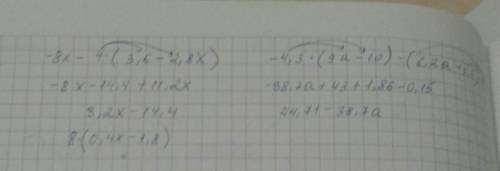 -8x - 4 · (3,6 - 2,8x)
-8x - 14,4 + 11,2x
3,2x - 14,4
8 · (0,4x - 1,8)
-4,3 · (9a - 10) - (6,2a +
-38,7a + 43 + 1,86 - 0,15
44,71 - 38,7a